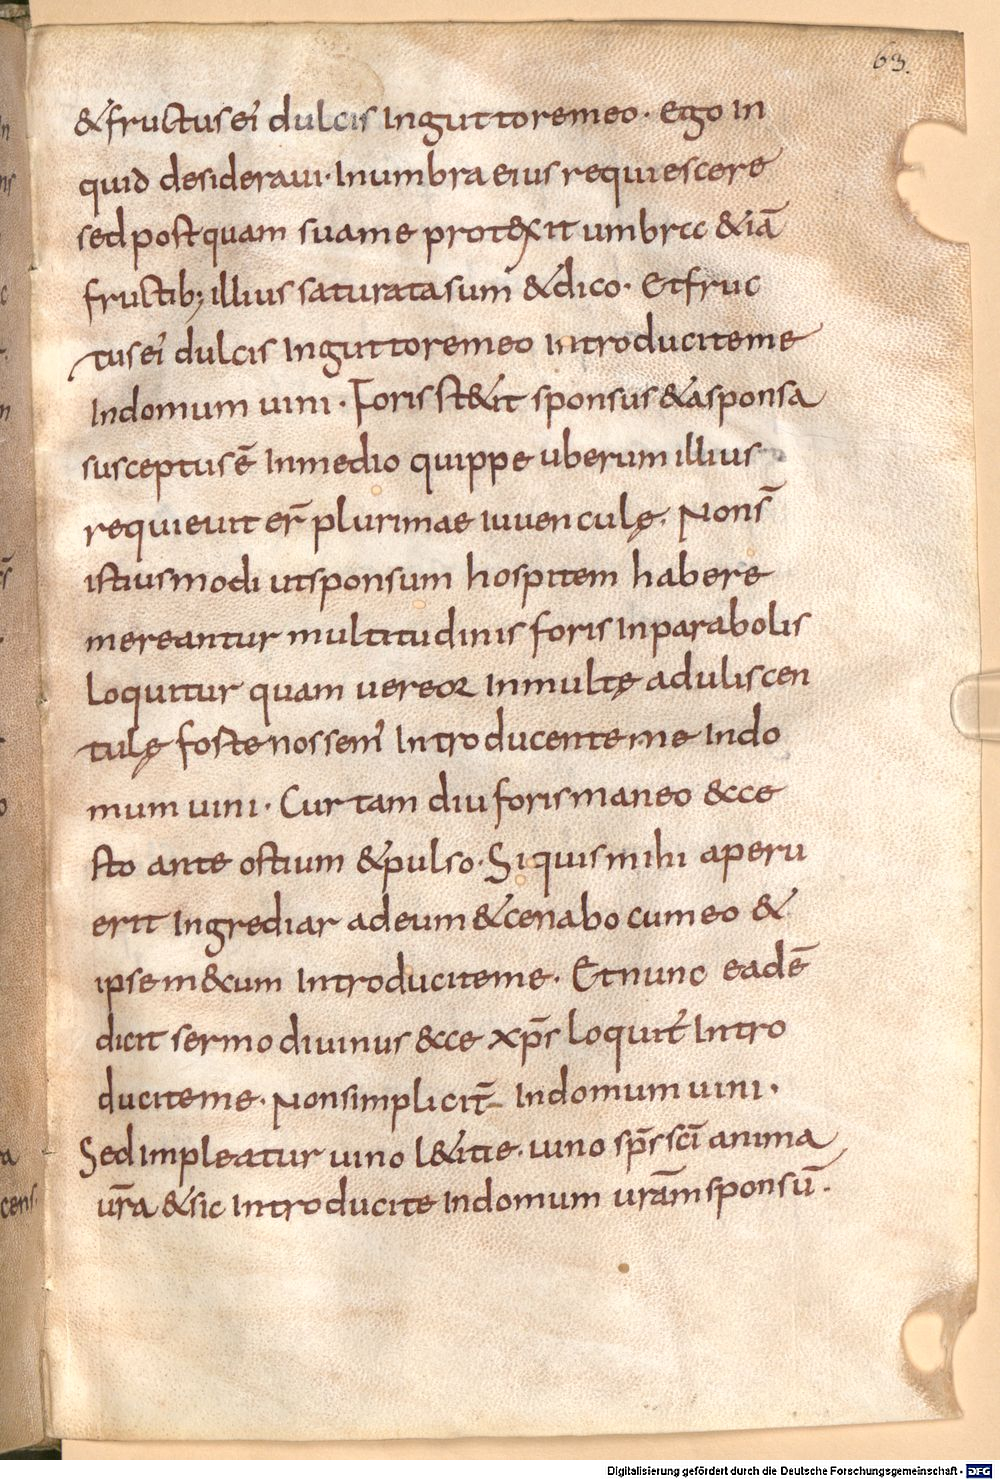 63.
&fructus ei dulcis Inguttoremeo· Ego In
quid desideraui· Inumbra eius requiescere
sed postquam suame protexit umbra &iā
fructib; illius saturatasum &dico· Etfruc
tus ei dulcis Inguttoremeo Introduciteme
Indomum uini· Foris st&it sponsus &asponsa
susceptus ē Inmedio quippe uberum illius
requieuit er̄ plurimae iuuenculę. Nons̄
istiusmodi utsponsum hospitem habere
mereantur multitudinis foris Inparabolis
Loquitur quam uereor Inmultę aduliscen
tulę foste nossem Introducenteme Indo
mum uini· Cur tam diu foris maneo &cce
sto ante ostium &pulso· Si quis mihi aperu
erit Ingrediar adeum &cenabo cum eo &
ipse m&cum Introduciteme· Etnunc eadē
dicit sermo diuinus &cce xp̄s loquit̄ Intro
duciteme· Nonsimplicit̄ Indomum uini·
Sed Impleatur uino l&itie· uino sp̄s sc̄i anima
ur̄a &sic Introducite Indomum urām sponsū·
Digitalisierung gefördert durch die Deutsche Forschungsgemeinschaft - DFG